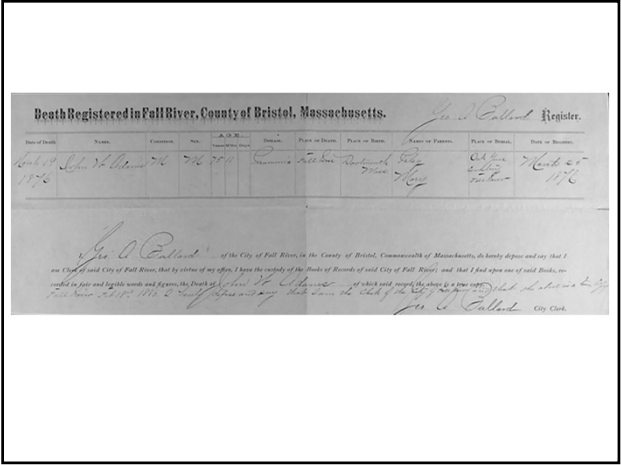 Death Registered in Fall River, County of Bristol, Massachusetts. Geo A Ballard Register.
Date of Death. Name. Condition. Sex. AGE. Disease. Place of Death. Place of Birth. Names of Parents. Place of Burial. Date of Record.
Years Mos Days
John W Adams M M 75 11 Fall River Dartmouth
1876 Mass Mary 1876
Geo. A Ballard of the City of Fall River, in the County of Bristol, Commonwealth of Massachusetts, do hereby depose and say that I
am Clerk of said City of Fall River, that by virtue of my office, I have the custody of the Books of Records of said City of Fall River; and that I find upon one of said Books, re-
corded in fair and legible words and figures, the Death of John W Adams of which said record, the above is a true copy.
Fall River that I am the Clerk of the City and that the above is a true Copy
Geo A Ballard City Clerk.